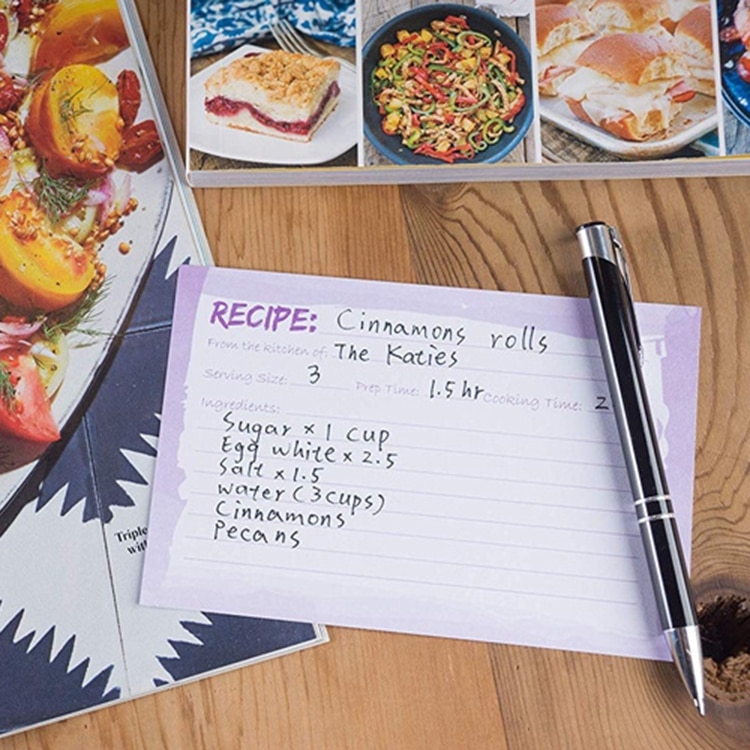 RECIPE: Cinnamons rolls
From the kitchen of: The Katies
Serving Size: 3 Prep Time: 1.5 hr Cooking Time: 2
Ingredients:
Sugar × 1 cup
Egg white × 2.5
Salt × 1.5
water (3cups)
Cinnamons
Pecans
Triple
with